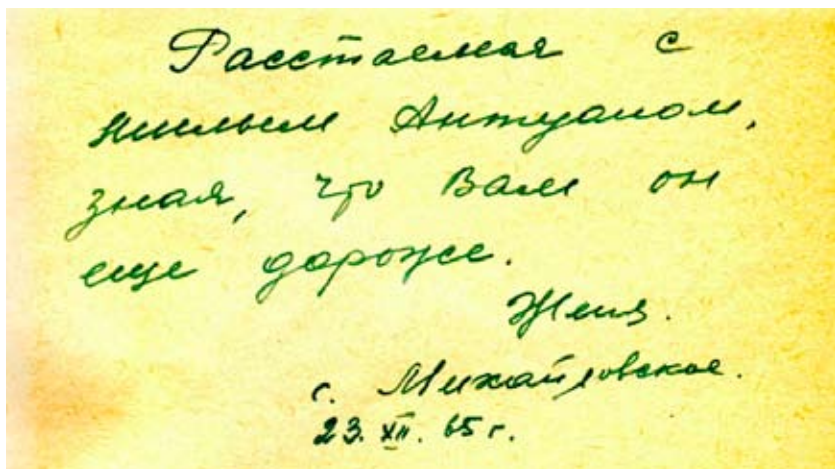 Расставаясь с
милым Антуаном,
зная, что Вам он
еще дороже.
Женя.
с. Михайловское.
23. XII. 65 г.